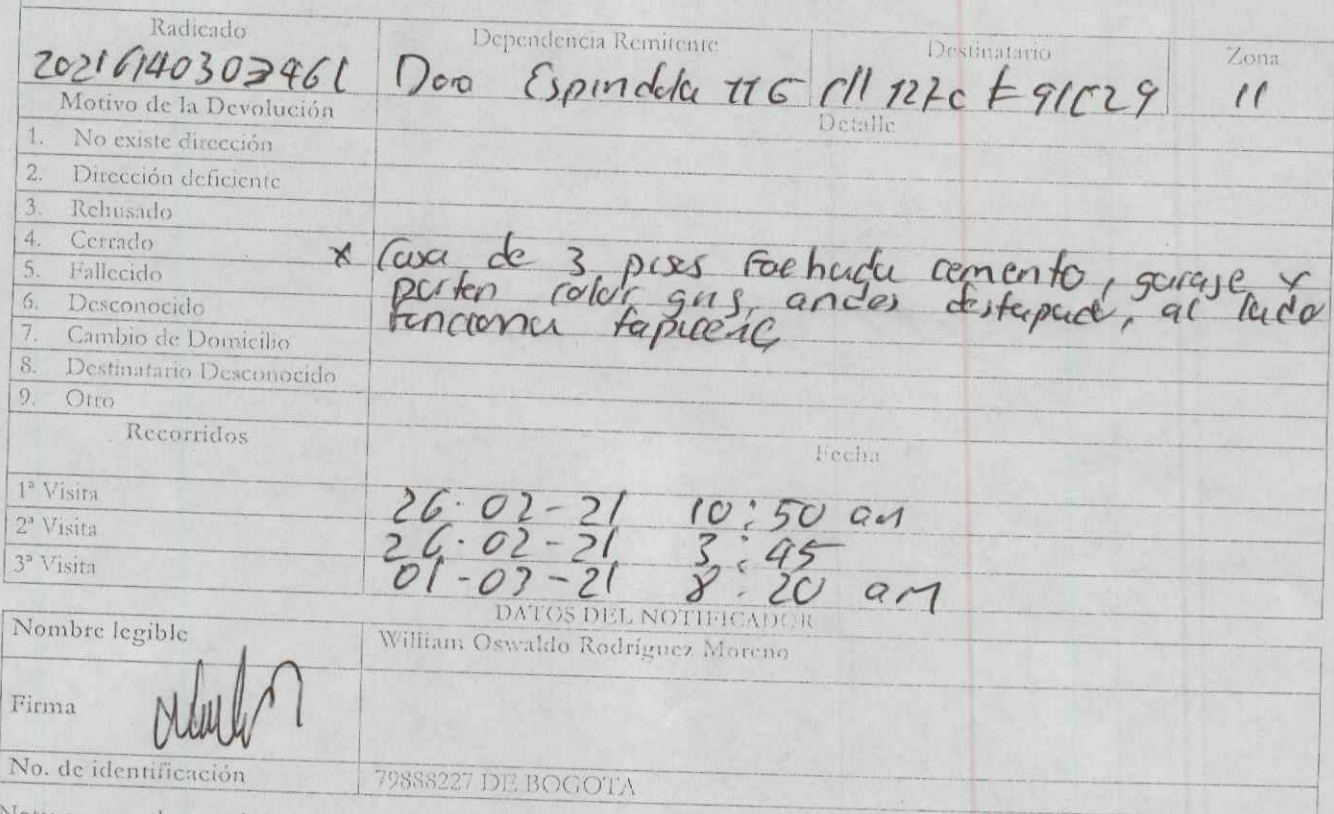 Radicado Dependencia Remitente Destinatario Zona
Dora Espindola 116 cll 127c # 91C29 11
Motivo de la Devolución Detalle
1. No existe dirección
2. Dirección deficiente
3. Rehusado
4. Cerrado * Casa de 3 pisos Fachada cemento, garaje y
5. Fallecido porton color gris, anden destapado, al lado
6. Desconocido funciona tapiceria
7. Cambio de Domicilio
8. Destinatario Desconocido
9. Otro
Recorridos Fecha
1ª Visita 26-02-21 10:50 am
2ª Visita 26-02-21 3:45
3ª Visita 01-03-21 8:20 am
DATOS DEL NOTIFICADOR
Nombre legible William Oswaldo Rodríguez Moreno
Firma
No. de identificación 79888227 DE BOGOTA